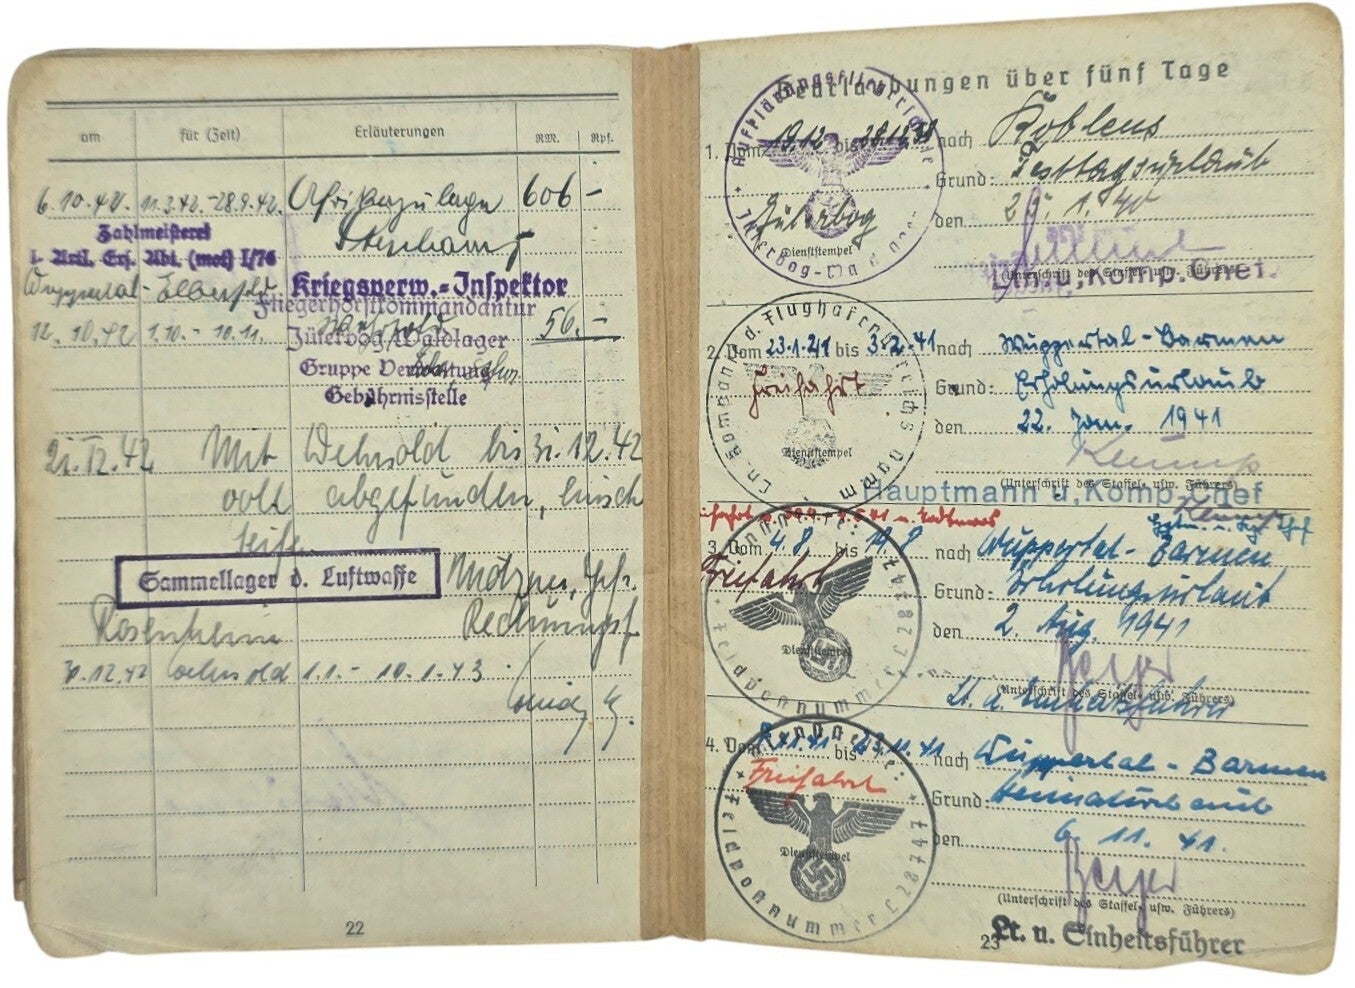 am für (Zeit) Erläuterungen RM. Rpf.
6.10.42. 11.3.42.-28.9.42. Afrikazulage 606 -
Zahlmeisterei
l. Artl. Ers. Abt. (mot) I/76
Wuppertal-Elberfeld
Kriegsverw.-Inspektor
Fliegerhorstkommandantur
12.10.42 1.10.-10.11. Wehrsold 56.-
Jüterbog/Waldlager
Gruppe Verwaltung
Gebührnisstelle
21.12.42 Mit Wehrsold bis 31.12.42
voll abgefunden,
Sammellager d. Luftwaffe
Rosenheim Rechnungsf.
31.12.42 Wehrsold 1.1.-10.1.43
22
Beurlaubungen über fünf Tage
1. Vom 19.12 bis 28.12.39 nach Koblenz
Grund: Festtagsurlaub
Jüterbog den 25.1.40
Dienststempel
(Unterschrift des Staffel- usw. Führers)
Ltn. u. Komp. Chef.
2. Vom 23.1.41 bis 3.2.41 nach Wuppertal-Barmen
Freifahrt Grund: Erholungsurlaub
den 22. Jan. 1941
Dienststempel
(Unterschrift des Staffel- usw. Führers)
Hauptmann u. Komp. Chef
3. Vom 4.8 bis 19.8 nach Wuppertal-Barmen
Freifahrt Grund: Erholungsurlaub
den 2. Aug. 1941
Dienststempel
Beyer
(Unterschrift des Staffel- usw. Führers)
Lt. u. Einheitsführer
Feldpostnummer L 28747
4. Vom bis 23.11.41 nach Wuppertal-Barmen
Freifahrt Grund: Heimaturlaub
den 6.11.41.
Dienststempel
Beyer
(Unterschrift des Staffel- usw. Führers)
Feldpostnummer L 28747
23 Lt. u. Einheitsführer